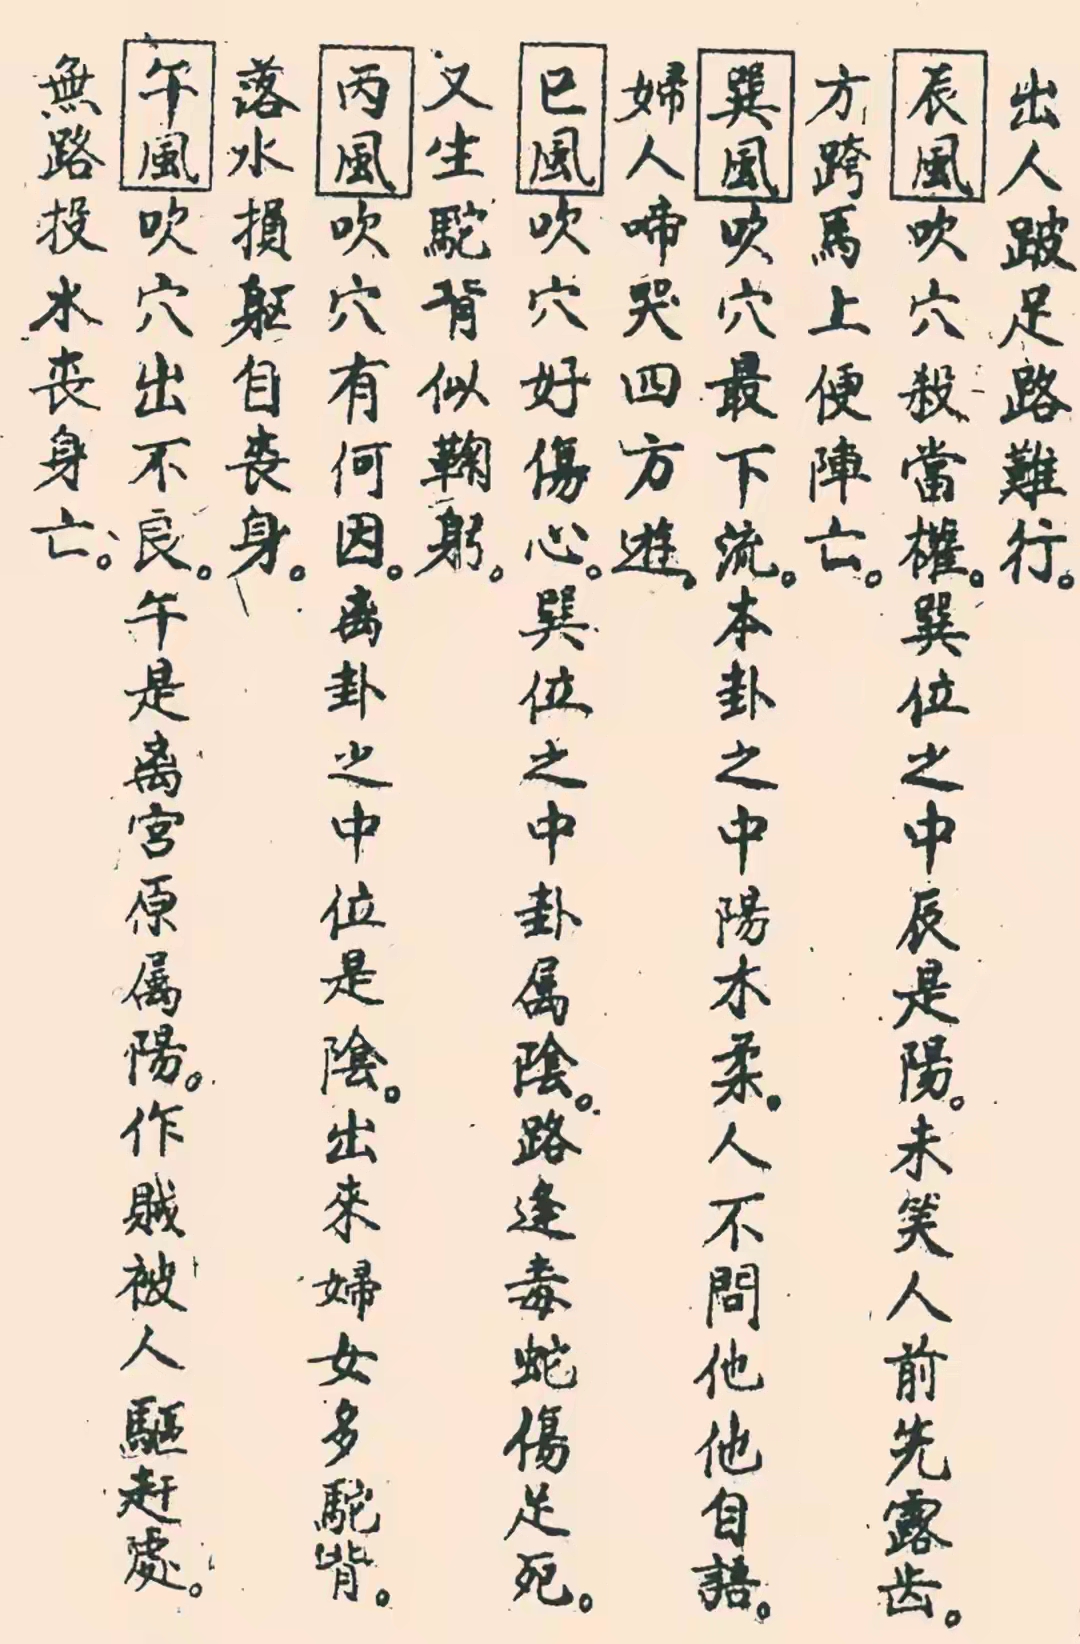 出人跛足路難行。
辰風吹穴殺當權。巽位之中辰是陽。未笑人前先露齿。
方跨馬上便陣亡。
巽風吹穴最下流。本卦之中陽木柔。人不問他他自語。
婦人啼哭四方遊。
巳風吹穴好傷心。巽位之中卦属陰。路逢毒蛇傷足死。
又生駝背似鞠躬。
丙風吹穴有何因。离卦之中位是陰。出來婦女多駝背。
落水損躯自丧身。
午風吹穴出不良。午是离宮原属陽。作賊被人驅赶處。
無路投水丧身亡。